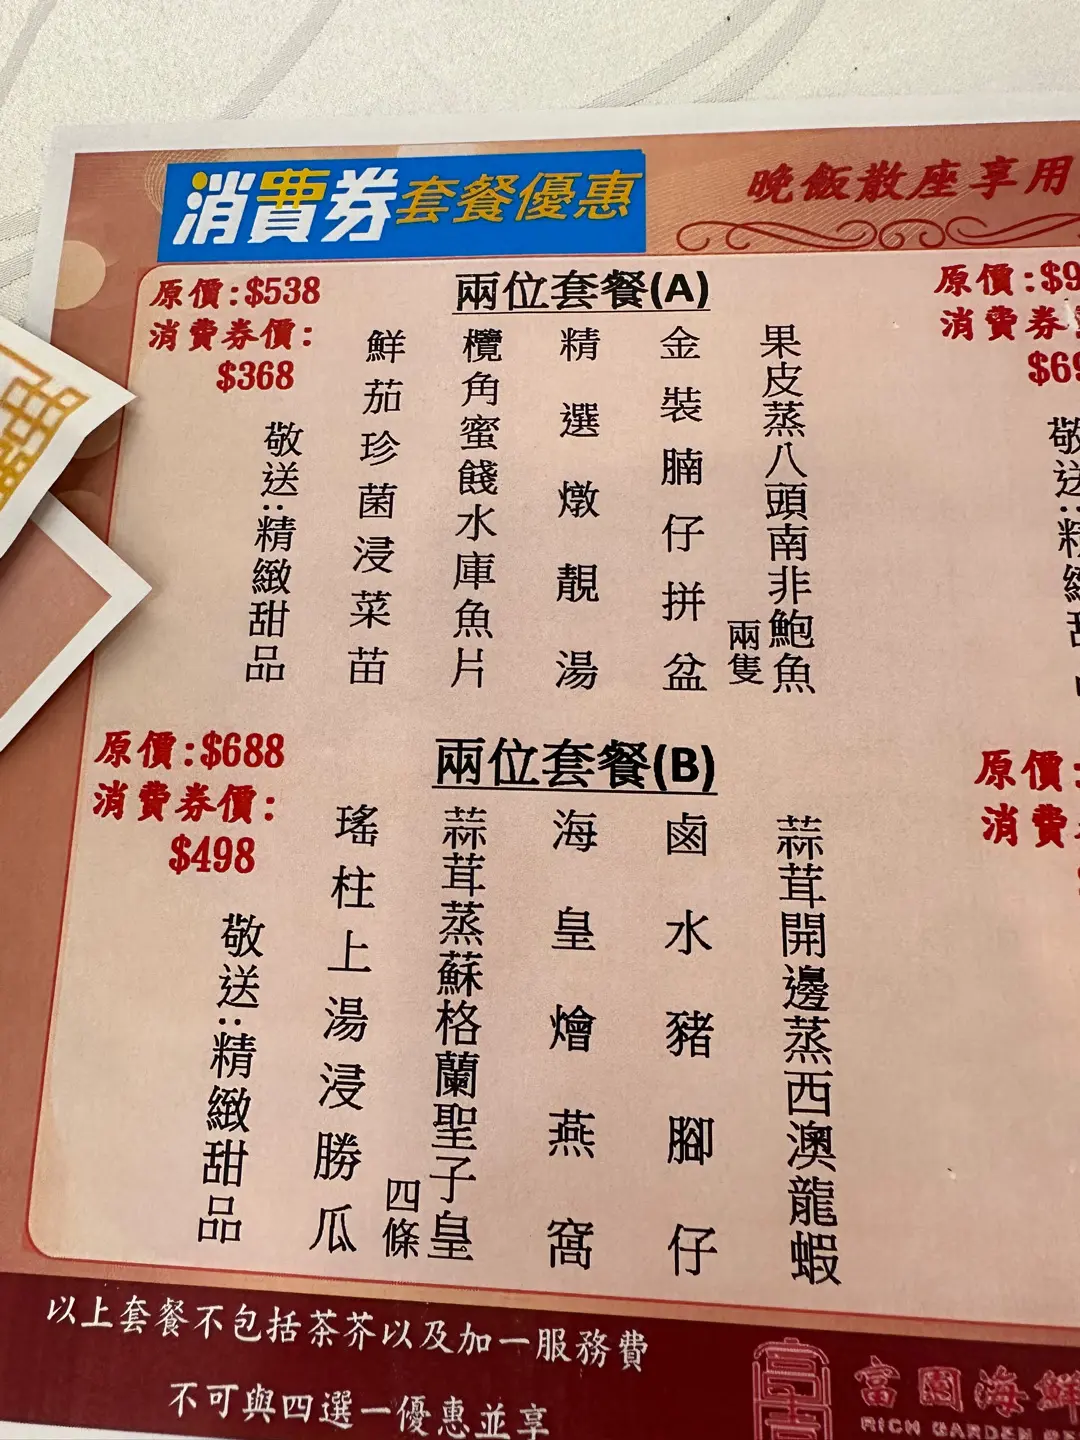 消費券套餐優惠
晚飯散座享用
兩位套餐(A)
原價:$538
消費券價:
$368
果皮蒸八頭南非鮑魚
兩隻
金裝腩仔拼盆
精選燉靚湯
欖角蜜餞水庫魚片
鮮茄珍菌浸菜苗
敬送:精緻甜品
兩位套餐(B)
原價:$688
消費券價:
$498
蒜茸開邊蒸西澳龍蝦
鹵水豬腳仔
海皇燴燕窩
蒜茸蒸蘇格蘭聖子皇
四條
瑤柱上湯浸勝瓜
敬送:精緻甜品
原價:$9
消費券
$69
敬送:精緻甜
原價:
消費
以上套餐不包括茶芥以及加一服務費
不可與四選一優惠並享
富園海鮮
RICH GARDEN